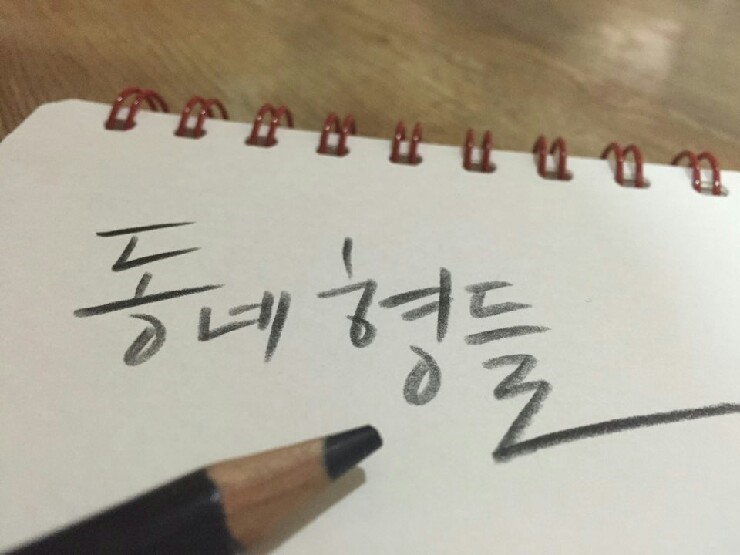 동네 형들